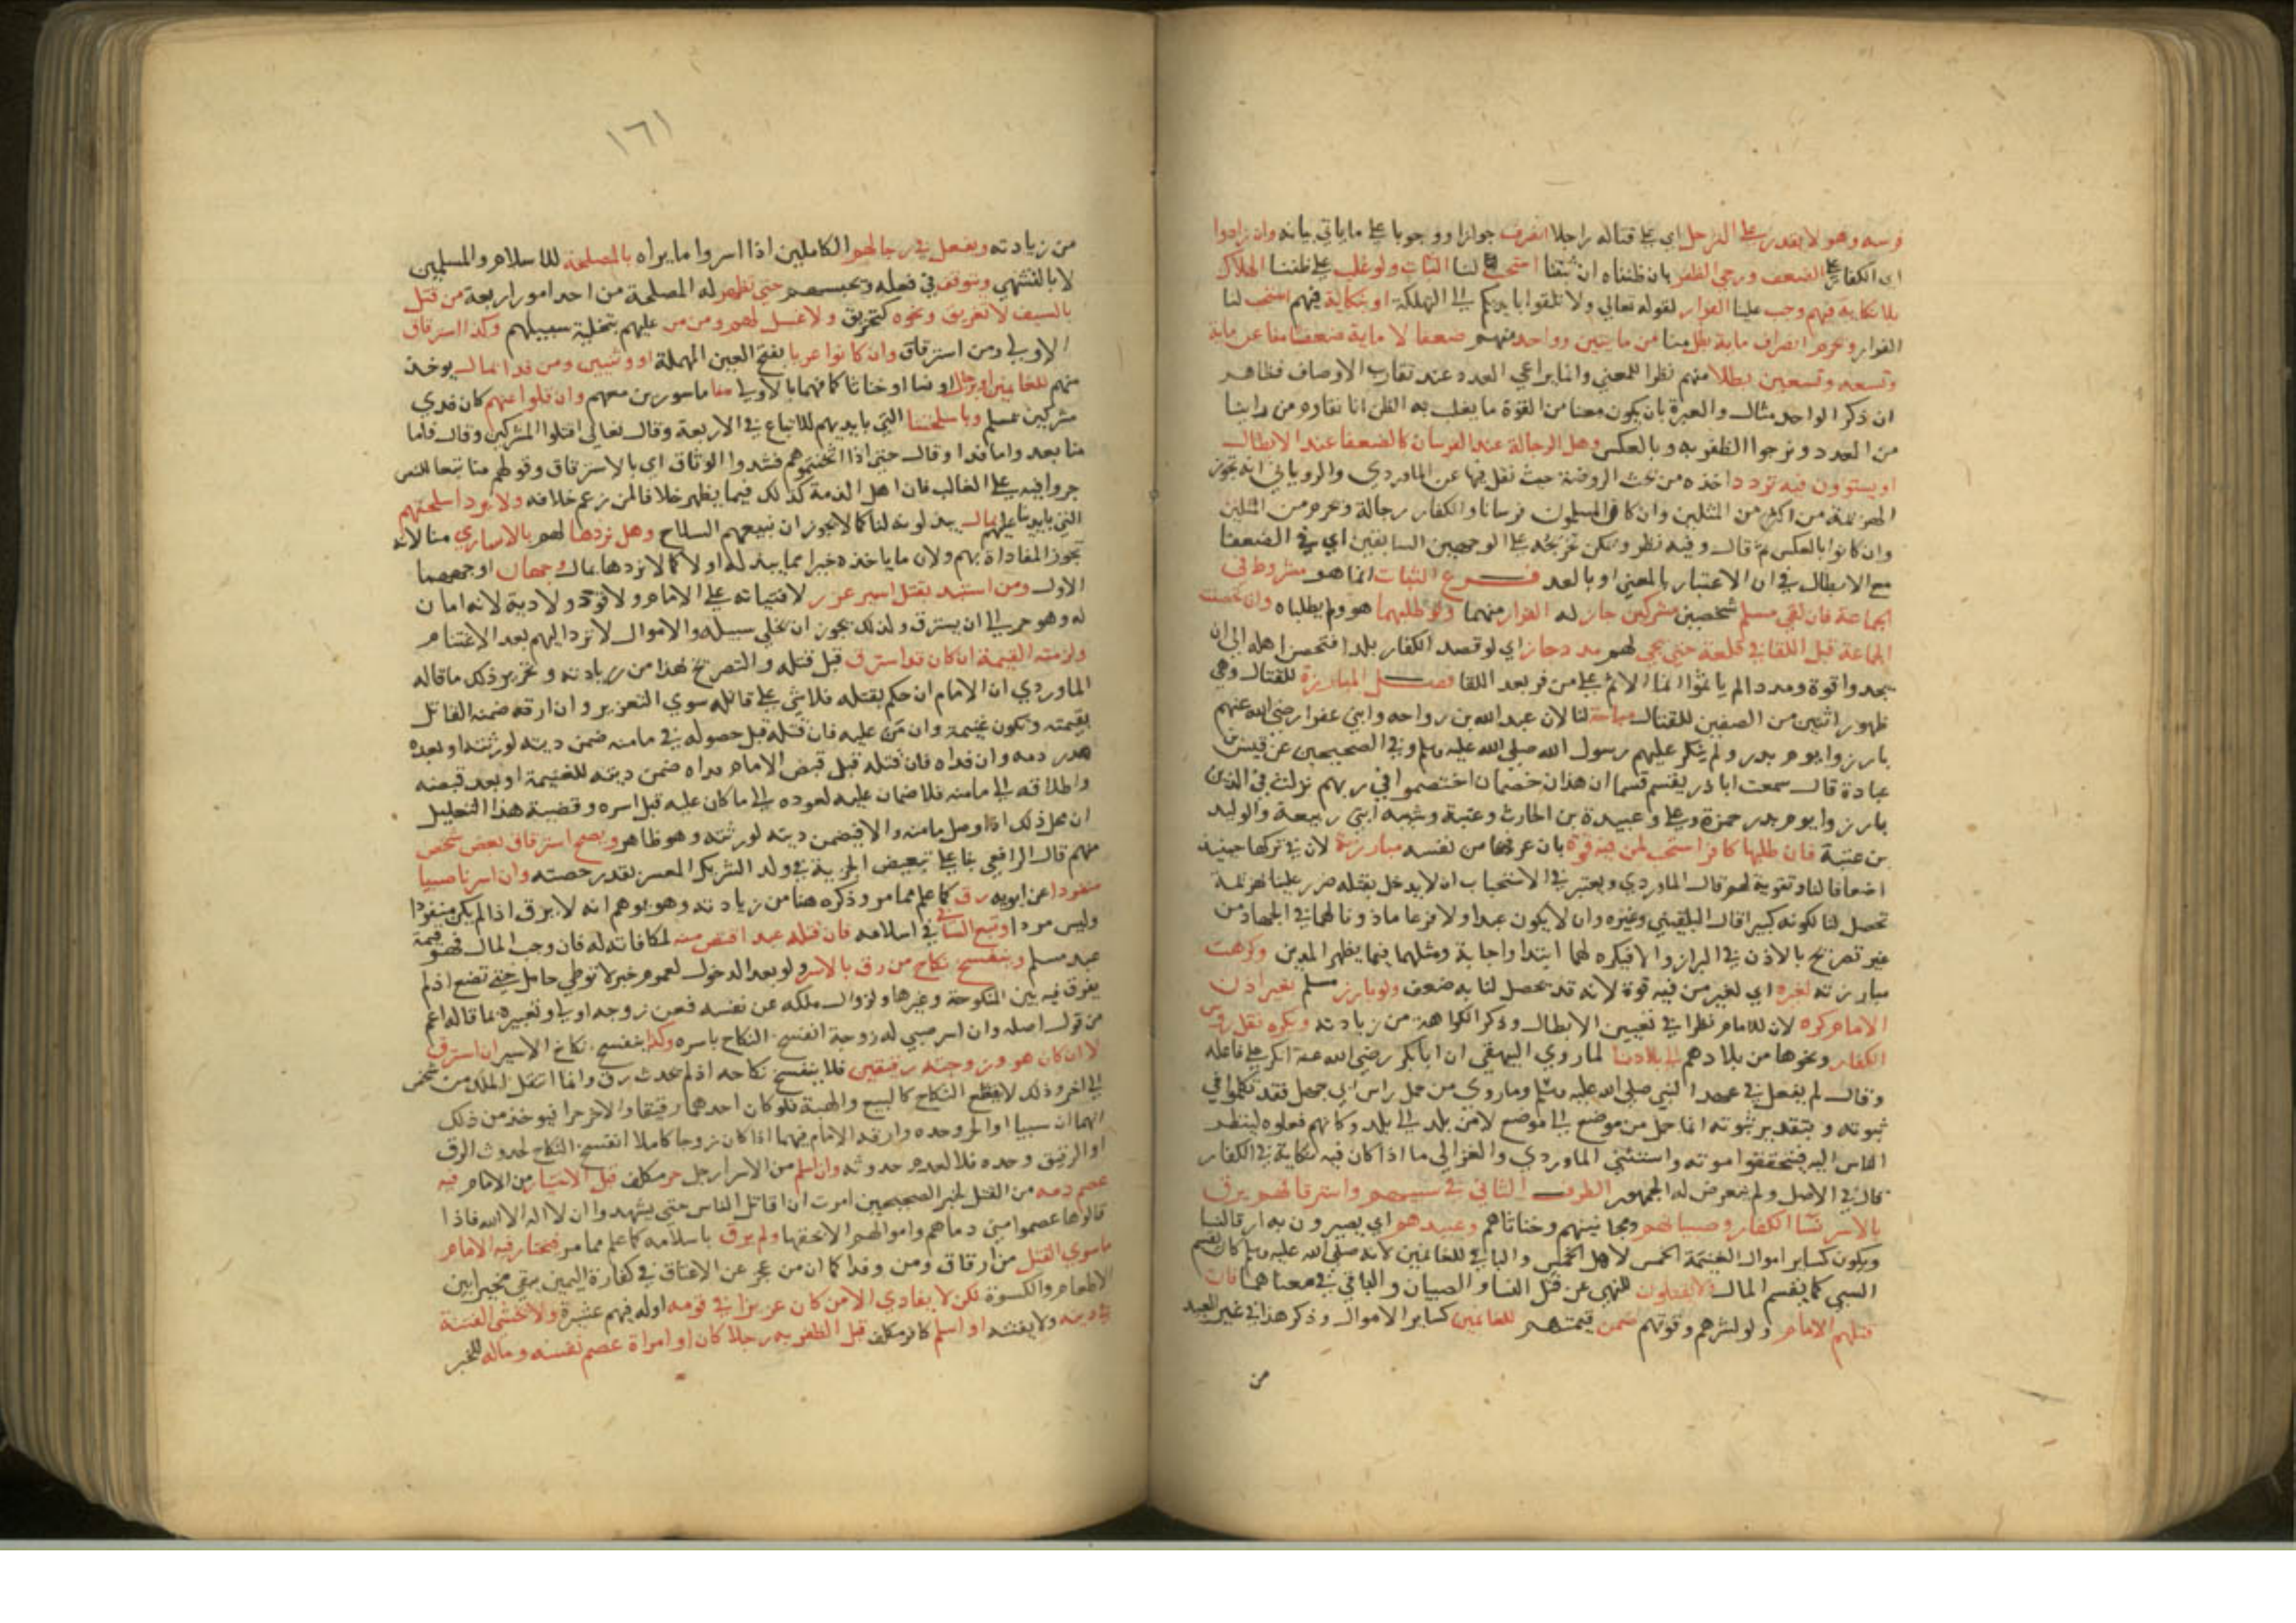 فرسه وهو لا يقدر على النزجل اي على قتاله راجلا انصرف جوازا ووجوبا على ما ياتي بيانه وان زادوا
اي الكفار على الضعف ورجي الظفر بان ظنناه ان ثبتنا استحب لنا الثبات ولو غلب على ظننا الهلاك
بلا نكاية فيهم وجب علينا الفرار لقوله تعالي ولا تلقوا بايديكم الى التهلكة او بنكاية فيهم استحب لنا
الفرار وتحرم انصراف ماية بطل منا عن مايتين وواحد منهم ضعفا لا ماية ضعفا منا عن ماية
وتسعه وتسعين بطلا منهم نظرا للمعني وانما يراعي العدد عند تقارب الاوصاف فظاهر
ان ذكر الواحد مثال والعبرة بان يكون معنا من القوة ما يغلب به الظن انا نقاوم من
من العدد ونرجوا الظفر به وبالعكس وهل الرجالة عند الفرسان كالضعفا عند الابطال
او يستوون فيه تردد اخذه من بحث الروضة حيث نقل فيها عن الماوردي والروياني انه تجوز
الهزيمة من اكثر من المثلين وان كان المسلمون فرسانا والكفار رجالة وتحرم من المثلين
وان كانوا بالعكس ثم قال وفيه نظر ويمكن تخريجه على الوجهين السابقين اي في الضعفا
مع الابطال في ان الاعتبار بالمعني او بالعدد فرع الثبات انما هو مشروط في
الجماعة فان لقي مسلم شخصين مشركين جاز له الفرار منهما ولو طلبهما هو ولم يطلباه وان تحصنت
الجماعة قبل اللقا في قلعة حتي يجي لهم مدد جاز اي لو قصد الكفار بلدا فتحصن اهله الى ان
يجدوا قوة ومددا لم ياثموا انما الاثم على من فر بعد اللقا فصل المبارزة للقتال وهي
ظهور اثنين من الصفين للقتال مباحة لنا لان عبد الله بن رواحه وابني عفرا رضي الله عنهم
بارزوا يوم بدر ولم ينكر عليهم رسول الله صلى الله عليه وسلم وفي الصحيحين عن قيس بن
عبادة قال سمعت ابا ذر يقسم قسما ان هذان خصمان اختصموا في ربهم نزلت في الذين
بارزوا يوم بدر حمزة وعلي وعبيدة بن الحارث وعتبة وشيبه ابني ربيعة والوليد
بن عتبة فان طلبها كافر استحب لمن فيه قوة بان عرفها من نفسه مبارزته لان في تركها حينيذ
اضعافا لنا وتقوية لهم قال الماوردي ويعتبر في الاستحباب ان لا يدخل بقتله ضرر علينا بهزيمة
تحصل لنا لكونه كبيرا قال البلقيني وغيره وان لا يكون عبدا ولا فرعا ماذونا لهما في الجهاد من
غير تصريح بالاذن في البراز والا فيكره لهما ابتدا واجابة ومثلهما فيما يظهر المدين وكرهت
مبارزته لغيره اي لغير من فيه قوة لانه قد يحصل لنا به ضعف ولو بارز مسلم بغير اذن
الامام كره لان للامام نظرا في تعيين الابطال وذكر الكراهة من زيادته ويكره نقل روس
الكفار ونحوها من بلادهم الى بلادنا لما روي البيهقي ان ابا بكر رضي الله عنه انكر على فاعله
وقال لم يفعل في عهد النبي صلى الله عليه وسلم وما روي من حمل راس ابي جهل فقد تكلموا في
ثبوته وبتقدير ثبوته انما حمل من موضع الى موضع لا من بلد الى بلد وكانهم فعلوه لينظر
الناس اليه فيتحققوا موته واستثني الماوردي والغزالي ما اذا كان فيه نكاية في الكفار
قال في الاصل ولم يتعرض له الجمهور الطرف الثاني في سبيهم واسترقاقهم يرق
بالاسر نسا الكفار وصبيانهم ومجانينهم وخناثاهم وعبيدهم اي يصيرون به ارقا لنا
ويكون كساير اموال الغنيمة الخمس لاهل الخمس والباقي للغانمين لانه صلى الله عليه وسلم كان يقسم
السبي كما يقسم المال ولا يقتلون للنهي عن قتل النسا والصبيان والباقي في معناهما فان
قتلهم الامام ولو لشرهم وقوتهم ضمن قيمتهم للغانمين كساير الاموال وذكر هذا في غير العبيد
من
١٦١
من زيادته ويفعل في رجالهم الكاملين اذا اسروا ما يراه بالمصلحة للاسلام والمسلمين
لا بالتشهي ويتوقف في فعله ويحبسهم حتي تظهر له المصلحة من احد امور اربعة من قتل
بالسيف لا تغريق ونحوه كتحريق ولا غسل لهم ومن من عليهم بتخلية سبيلهم وكذا استرقاق
الاولى ومن استرقاق وان كانوا عربا بفتح العين المهملة او وثنيين ومن فدا بمال يوخذ
منهم للغانمين او برجال او نسا او خناثا كما فهما بالاولى منا ماسورين معهم وان قلوا عنهم كان فدي
مشركين بمسلم وباسلحتنا التي بايديهم للاتباع في الاربعة وقال تعالى اقتلوا المشركين وقال فاما
منا بعد واما فدا وقال حتي اذا اثخنتموهم فشدوا الوثاق اي بالاسترقاق وقولهم منا تبعا للنص
جروا فيه على الغالب فان اهل الذمة كذلك فيما يظهر خلافا لمن زعم خلافه ولا يرد اسلحتهم
التي بايدينا عليهم بمال يبذلونه لنا كما لا يجوز ان نبيعهم السلاح وهل نردها لهم بالاساري منا لانه
تجوز المفاداة بهم ولان ما ياخذه خيرا مما يبذله او لا كما لا نردها بمال وجهان اوجههما
الاول ومن استبد بقتل اسير عزر لافتياته على الامام ولا قود ولا دية لانه امان
له وهو حر الى ان يسترق ولذلك يجوز ان يخلي سبيله والاموال لا ترد اليهم بعد الاغتنام
ولزمته القيمة ان كان قد استرق قبل قتله والتصريح بهذا من زيادته وتحرير ذلك ما قاله
الماوردي ان الامام ان حكم بقتله فلا شي على قاتله سوي التعزير وان ارقه ضمنه القاتل
بقيمته وتكون غنيمة وان من عليه فان قتله قبل حصوله في مامنه ضمن ديته لورثته او بعده
هدر دمه وان فداه فان قتله قبل قبض الامام فداه ضمن ديته للغنيمة او بعد قبضه
واطلاقه الى مامنه فلا ضمان عليه لعوده الى ما كان عليه قبل اسره وقضية هذا التعليل
ان محل ذلك اذا وصل مامنه والا فيضمن ديته لورثته وهو ظاهر ويصح استرقاق بعض شخص
منهم قال الرافعي بنا على تبعيض الحرية في ولد الشريك المعسر بقدر حصته وان اسرنا صبيا
منفردا عن ابويه رق كما علم مما مر وذكره هنا من زيادته وهو يوهم انه لا يرق اذا لم يكن منفردا
وليس مردا وتبع السابي في اسلامه فان قتله عبد اقتص منه لمكافاته له فان وجب المال فهو قيمة
عبد مسلم وينفسخ نكاح من رق بالاسر ولو بعد الدخول لعموم خبر لا توطي حامل حتي تضع اذ لم
يفرق فيه بين المنكوحة وغيرها ولزوال ملكه عن نفسه فعن زوجه اولى وتعبيره بما قاله اعم
من قول اصله وان اسر صبي له زوجة انفسخ النكاح باسره وكذا ينفسخ نكاح الاسير ان استرق
لا ان كان هو وزوجته رقيقين فلا ينفسخ نكاحه اذ لم يحدث رق وانما انتقل الملك من شخص
الى اخر وذلك لا يقطع النكاح كالبيع والهبة فلو كان احدهما رقيقا والاخر حرا فيوخذ من ذلك
انهما ان سبيا او الحر وحده وارقه الامام فيهما اذا كان زوجا كاملا انفسخ النكاح لحدوث الرق
او الرقيق وحده فلا لعدم حدوثه وان اسلم من الاسرا رجل حر مكلف قبل الاختيار من الامام فيه
عصم دمه من القتل لخبر الصحيحين امرت ان اقاتل الناس حتي يشهدوا ان لا اله الا الله فاذا
قالوها عصموا مني دماهم واموالهم الا بحقها ولم يرق باسلامه كما علم مما مر فيختار فيه الامام
ما سوي القتل من ارقاق ومن وفدا كما ان من عجز عن الاعتاق في كفارة اليمين يبقي مخيرا بين
الاطعام والكسوة لكن لا يفادي الا من كان عزيزا في قومه او له فيهم عشيرة ولا تخشى الفتنة
في دينه ولا يفتنه او اسلم كافر مكلف قبل الظفر به رجلا كان او امراة عصم نفسه وماله للخبر